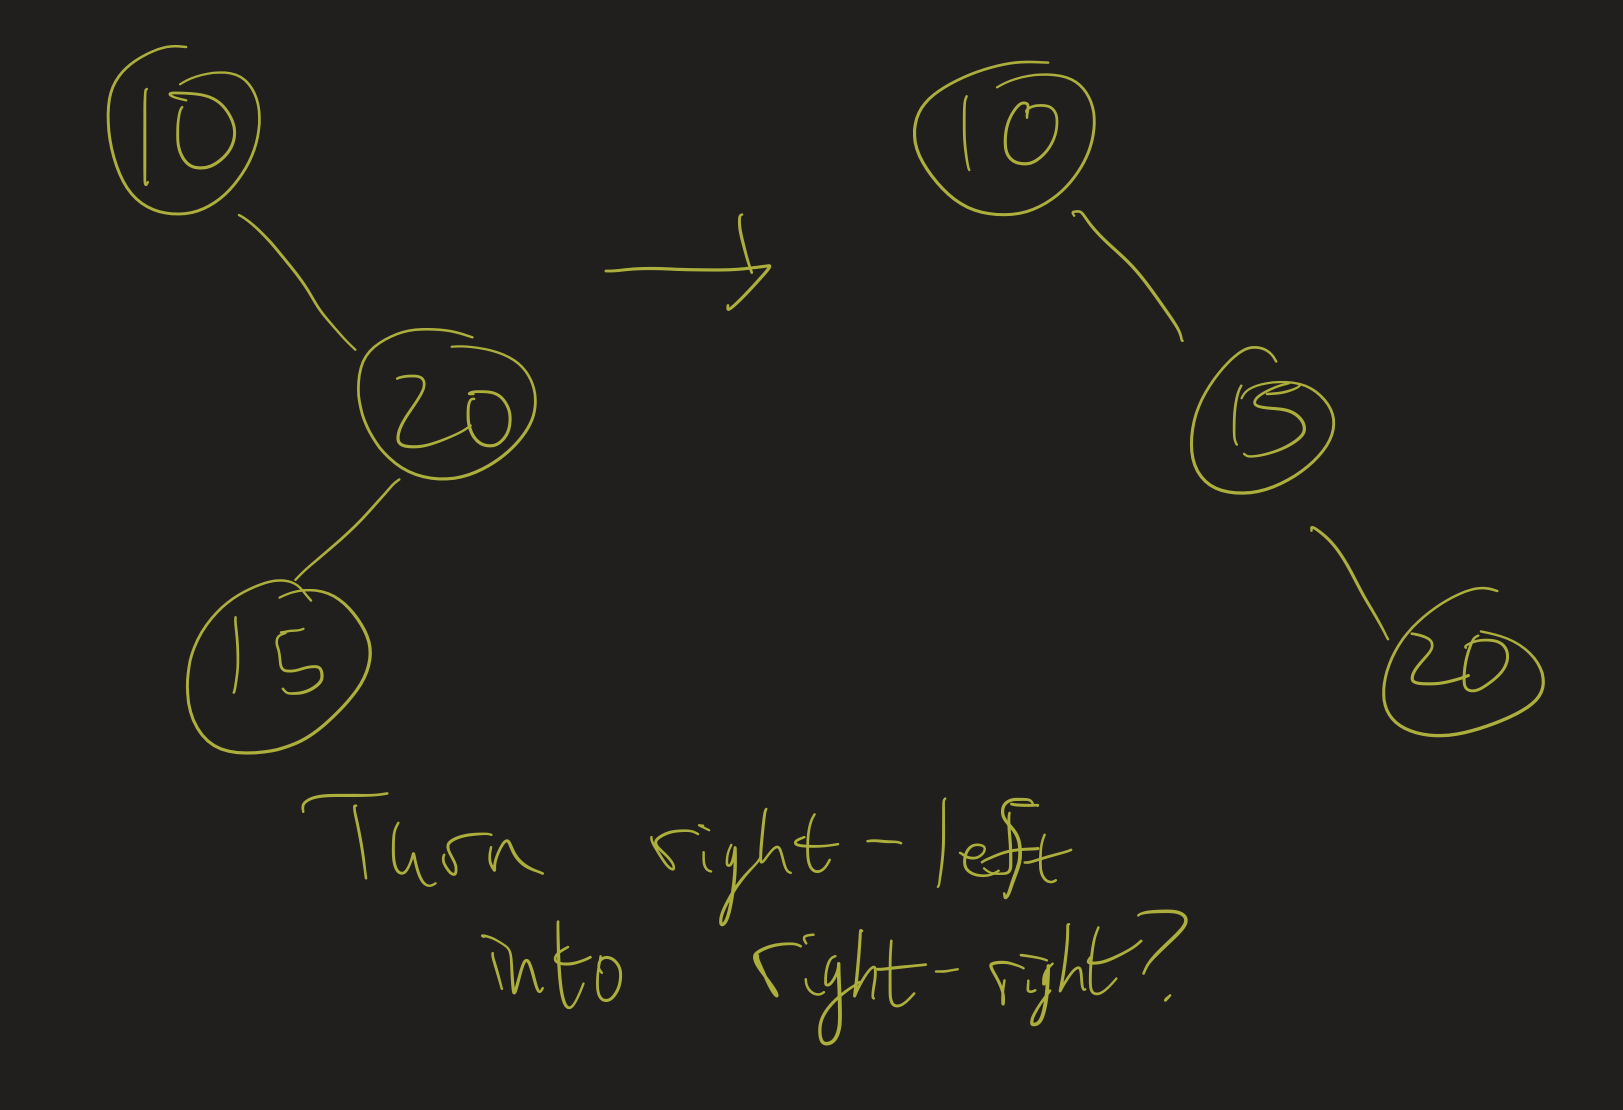 10
10
20
15
15
20
Turn right-left
into right-right?